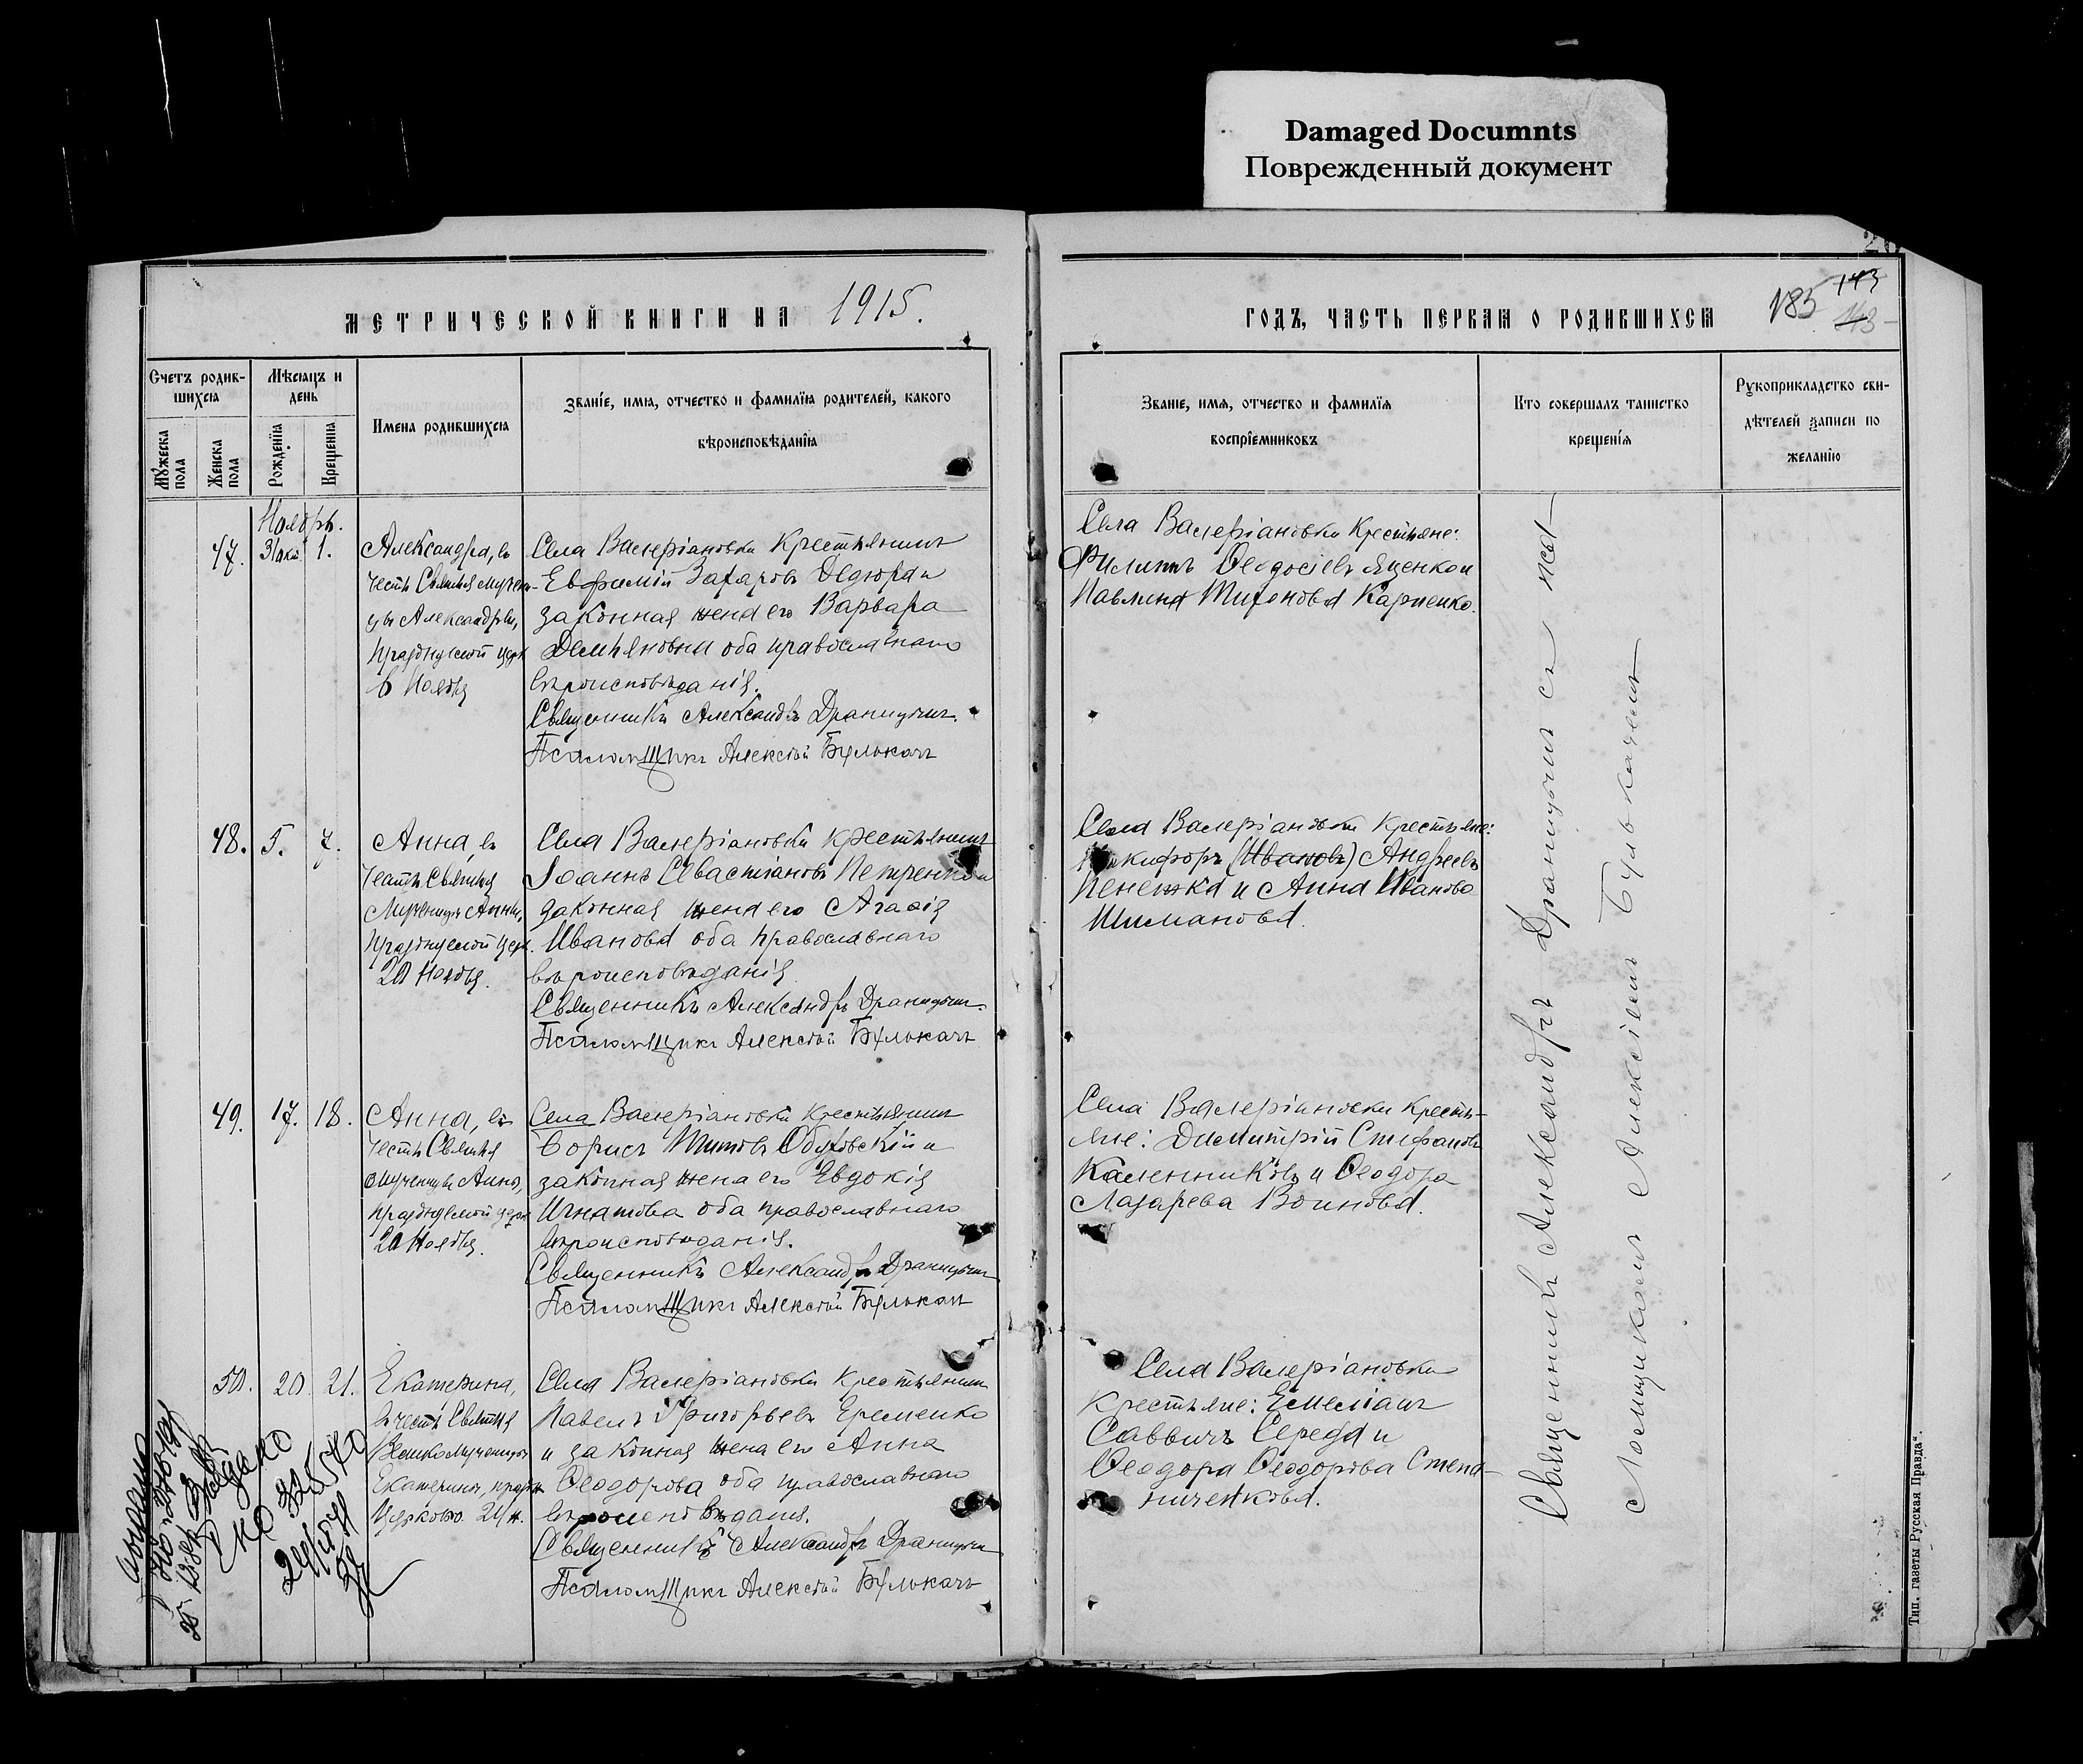 Damaged Documnts
Поврежденный документ
МЕТРИЧЕСКОЙ КНИГИ НА 1915.
Счетъ родив-
шихся
Мѣсяцъ и
день
Мужеска пола
Женска пола
Рожденїя
Крещенїя
Имена родившихся
Званїе, имя, отчество и фамилїя родителей, какого
вѣроисповѣданїя
Ноябрь.
47. 31 окт. 1.
Александра, въ
честь Святыя мучени-
цы Александры,
празднуемой церк
6 Ноября
Села Валеріановки крестьянинъ
Евфимій Захаровъ Дедюра и
законная жена его Варвара
Демьяновна оба православнаго
вѣроисповѣданія.
Священникъ Александръ Драницынъ.
Псаломщикъ Алексѣй Булькачъ
48. 5. 7.
Анна, въ
честь Святыя
Мученицы Анны,
празднуемой церк.
20 Ноября.
Села Валеріановки крестьянинъ
Іоаннъ Севастіановъ Петренко и
законная жена его Агафія
Иванова оба православнаго
вѣроисповѣданія
Священникъ Александръ Драницынъ.
Псаломщикъ Алексѣй Булькачъ
49. 17. 18.
Анна, въ
честь Святыя
Мученицы Анны,
празднуемой церк
20 Ноября.
Села Валеріановки крестьянинъ
Борисъ Титовъ Обуховскій и
законная жена его Евдокія
Игнатова оба православнаго
вѣроисповѣданія.
Священникъ Александръ Драницынъ
Псаломщикъ Алексѣй Булькачъ
50. 20. 21.
Екатерина,
въ честь Святыя
Великомученицы
Екатерины, праздн
Церковью 24 н.
Села Валеріановки крестьянинъ
Павелъ Григорьевъ Еременко
и законная жена его Анна
Ѳеодорова оба православнаго
вѣроисповѣданія.
Священникъ Александръ Драницынъ
Псаломщикъ Алексѣй Булькачъ
ГОДЪ, ЧАСТЬ ПЕРВАЯ О РОДИВШИХСЯ
185
143
143
Званїе, имя, отчество и фамилїя
воспрїемниковъ
Кто совершалъ таинство
крещенїя
Рукоприкладство сви-
дѣтелей записи по
желанїю
Села Валеріановки крестьяне:
Филиппъ Ѳеодосіевъ Яценко и
Павлина Тихонова Карпенко.
Села Валеріановки крестьяне:
Никифоръ (Ивановъ) Андреевъ
Пенежка и Анна Иванова
Шиманова.
Села Валеріановки кресть-
яне: Димитрій Стефановъ
Каленниковъ и Ѳеодора
Лазарева Воинова.
Села Валеріановки
крестьяне: Емеліанъ
Саввичъ Середа и
Ѳеодора Ѳеодорова Степа-
ниченкова.
Священникъ Александръ Драницынъ съ псал
Алексіемъ Булькачемъ
Тип. газеты „Русская Правда“.